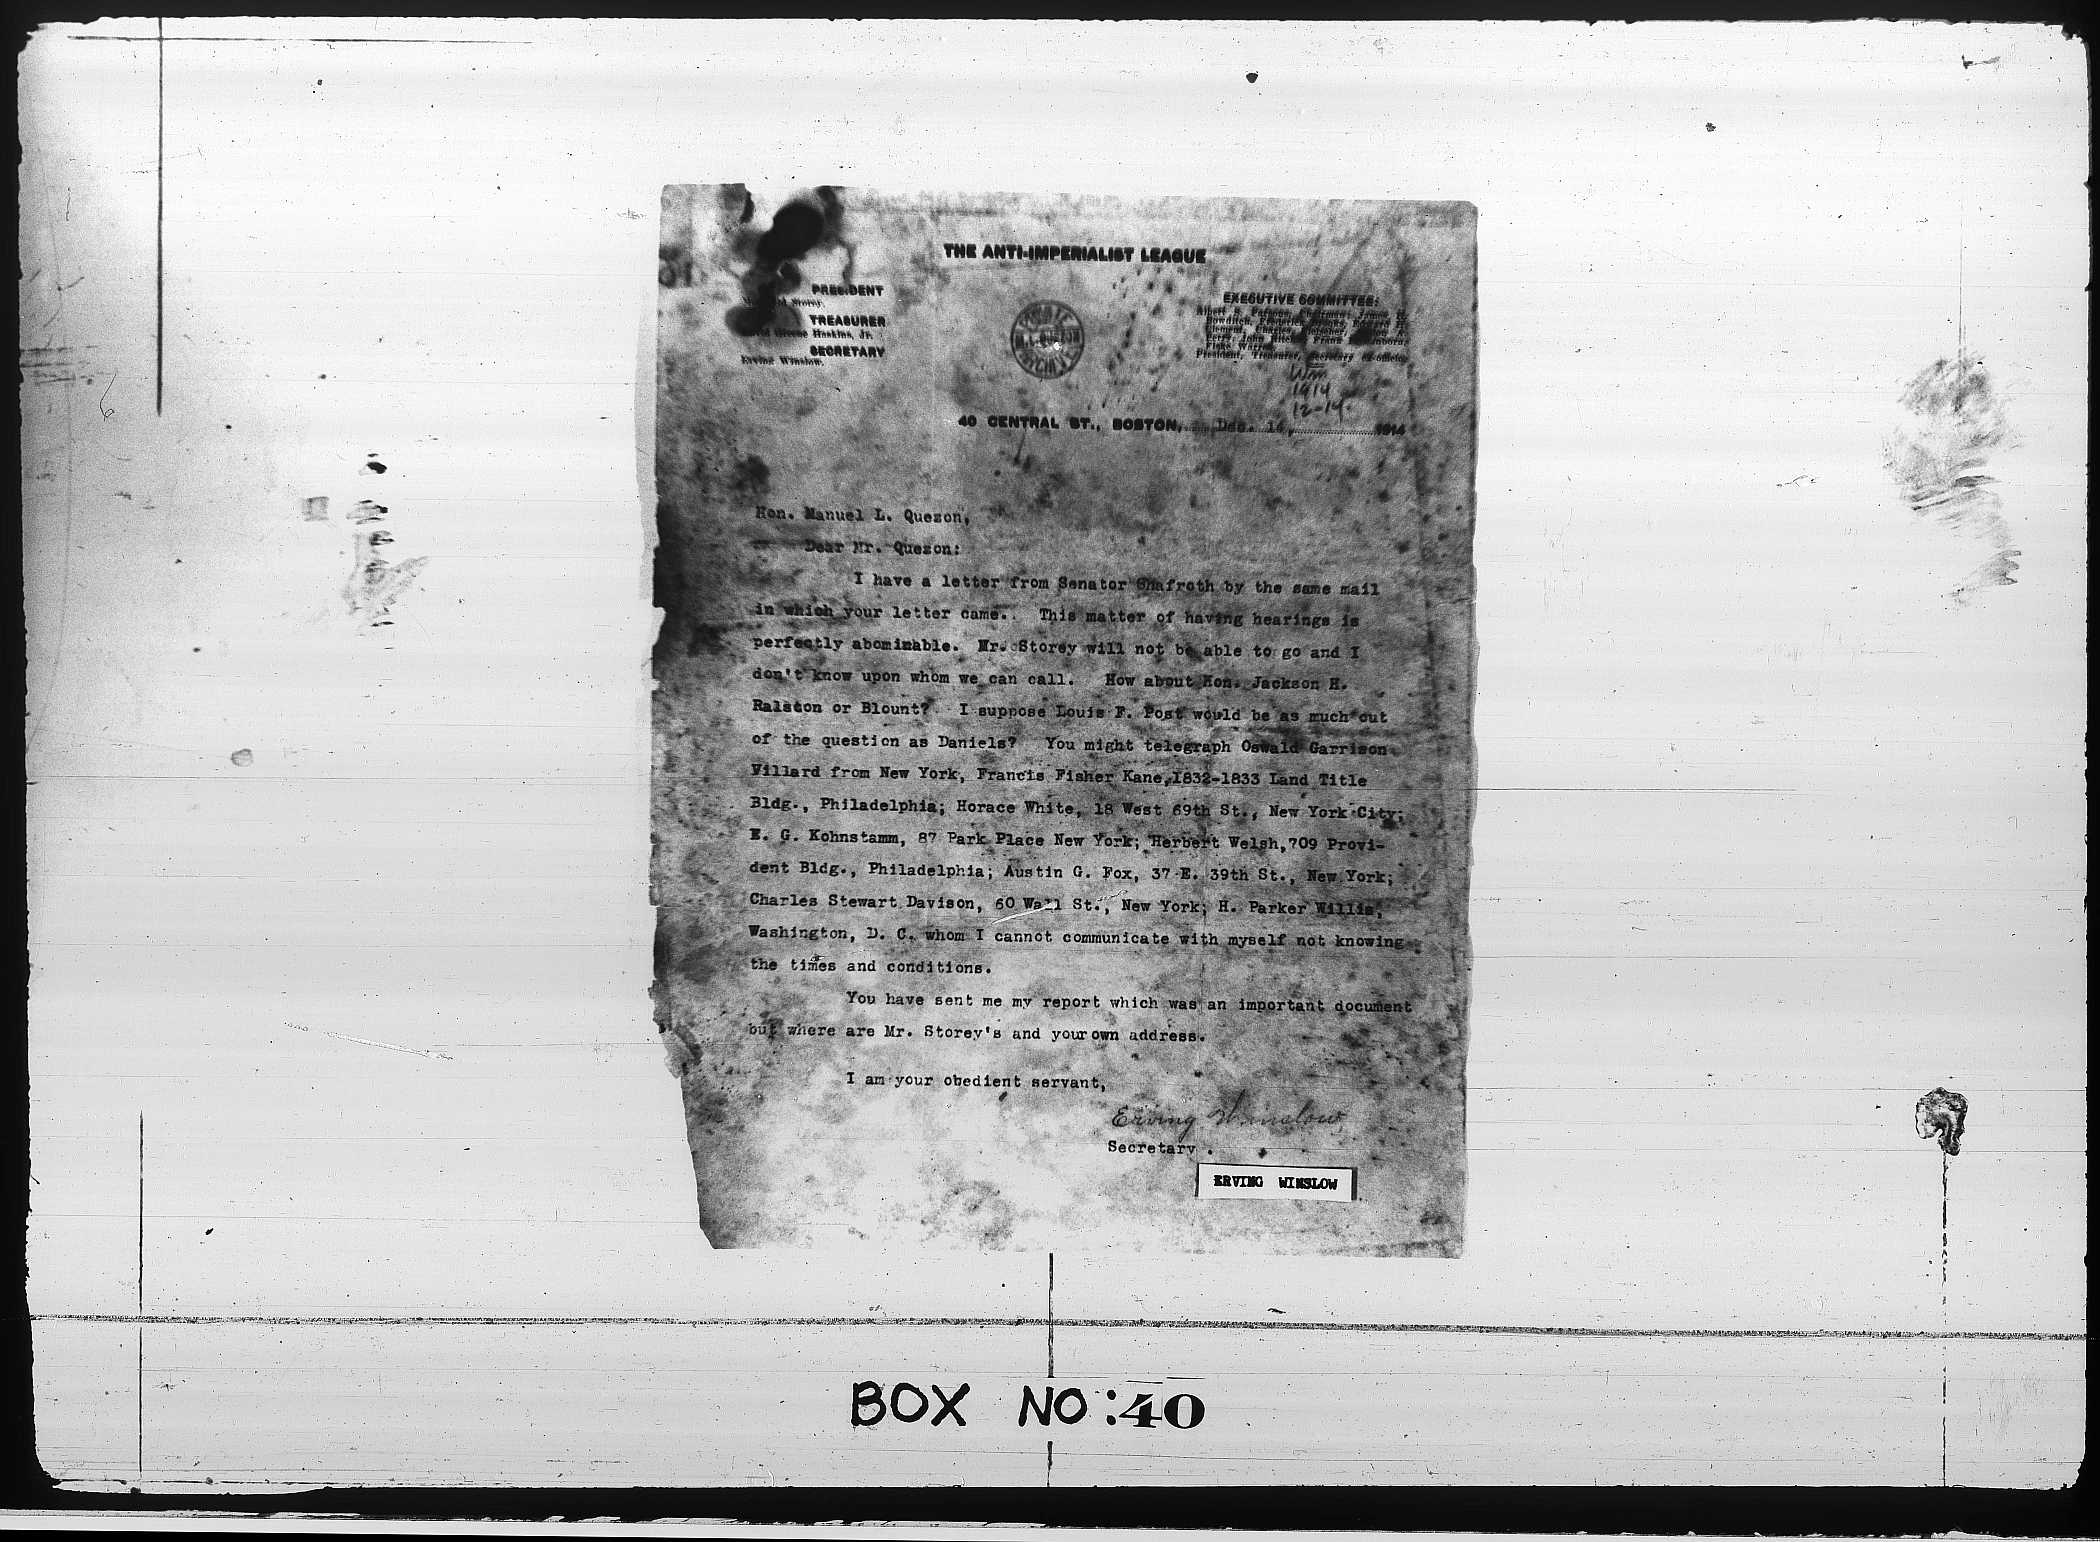 THE ANTI-IMPERIALIST LEAGUE
PRESIDENT
Storey.
TREASURER
Greene Haskins, Jr.
SECRETARY
Erving Winslow.
EXECUTIVE COMMITTEE:
Albert S. Parsons, Chairman; James H.
Bowditch, Frederick Brooks, Edward H.
Clement, Charles
Perry, John Frank
Fiske Warren.
President, Treasurer, Secretary ex-officio
1914
12-14.
40 CENTRAL ST., BOSTON, Dec. 14, 1914
Hon. Manuel L. Quezon,
Dear Mr. Quezon:
I have a letter from Senator Shafroth by the same mail
in which your letter came. This matter of having hearings is
perfectly abominable. Mr. Storey will not be able to go and I
don't know upon whom we can call. How about Hon. Jackson H.
Ralston or Blount? I suppose Louis F. Post would be as much out
of the question as Daniels? You might telegraph Oswald Garrison
Villard from New York, Francis Fisher Kane,1832-1833 Land Title
Bldg., Philadelphia; Horace White, 18 West 69th St., New York City;
E. G. Kohnstamm, 87 Park Place New York; Herbert Welsh,709 Provi-
dent Bldg., Philadelphia; Austin G. Fox, 37 E. 39th St., New York;
Charles Stewart Davison, 60 Wall St., New York; H. Parker Willis,
Washington, D. C. whom I cannot communicate with myself not knowing
the times and conditions.
You have sent me my report which was an important document
but where are Mr. Storey's and your own address.
I am your obedient servant,
Erving Winslow
Secretary.
ERVING WINSLOW
BOX NO:40